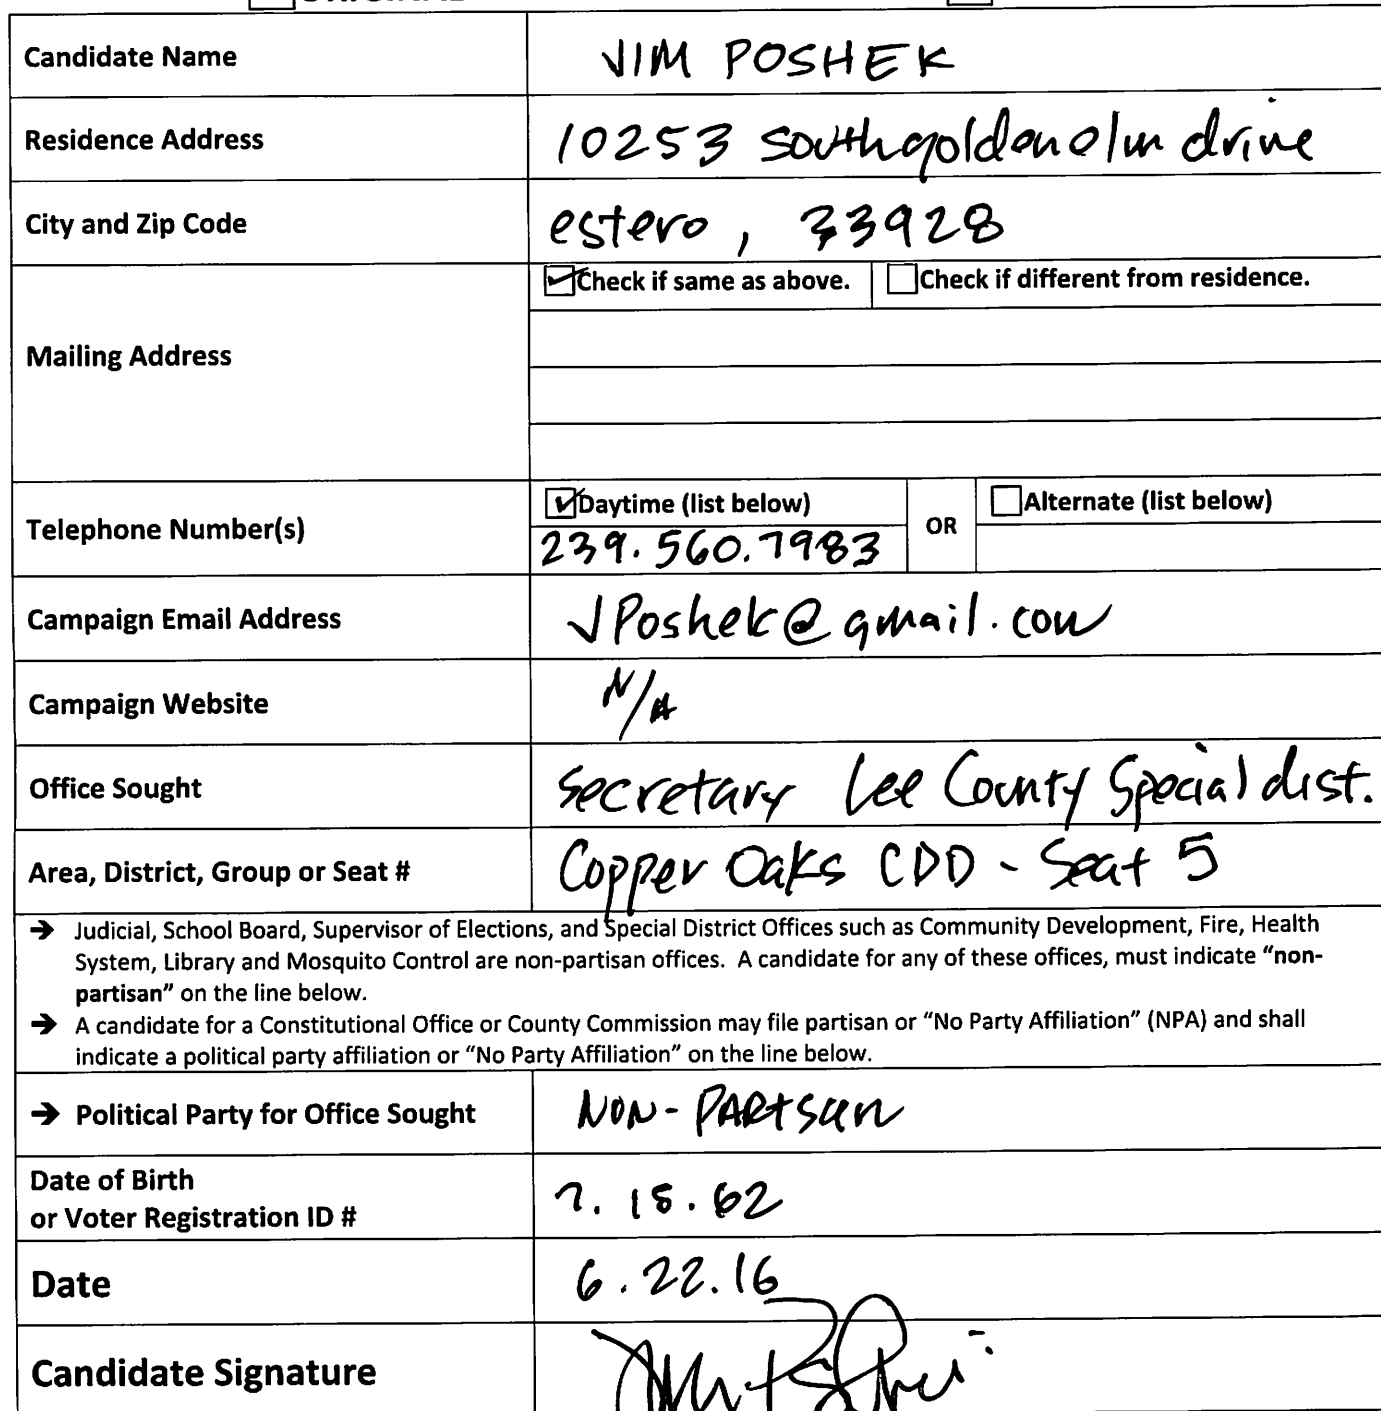 Candidate Name JIM POSHEK
Residence Address 10253 south golden elm drive
City and Zip Code estero, 33928
Check if same as above. Check if different from residence.
Mailing Address
Daytime (list below) Alternate (list below)
Telephone Number(s) OR
239.560.7983
Campaign Email Address JPoshek@gmail.com
Campaign Website N/A
Office Sought Secretary Lee County Special dist.
Area, District, Group or Seat # Copper Oaks CDD - Seat 5
→ Judicial, School Board, Supervisor of Elections, and Special District Offices such as Community Development, Fire, Health
System, Library and Mosquito Control are non-partisan offices. A candidate for any of these offices, must indicate “non-
partisan” on the line below.
→ A candidate for a Constitutional Office or County Commission may file partisan or “No Party Affiliation” (NPA) and shall
indicate a political party affiliation or “No Party Affiliation” on the line below.
→ Political Party for Office Sought NON-PARTSAN
Date of Birth
or Voter Registration ID # 7.18.62
Date 6.22.16
Candidate Signature